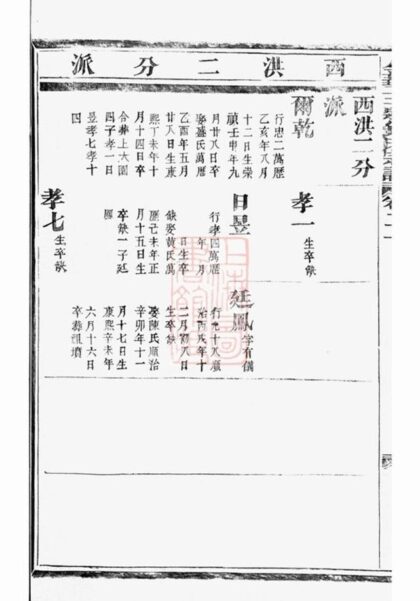 西洪二分派
西洪二分
派
爾乾
行忠二萬歷
乙亥年八月
十二日生榮
禎壬申年九
月廿八日卒
娶盛氏萬歷
乙酉年五月
廿八日生康
熙丁未年十
月十四日卒
合葬上大園
四子孝一日
昱孝七孝十
四
孝一 生卒缺
日昱
行孝四萬歷
年 月
日生卒
缺娶黄氏萬
歷己未年正
月十五日生
卒缺一子廷
孝七 生卒缺
廷鳳 字有儀
行九十八順
治丙戌年十
二月初八日
生卒缺
娶陳氏順治
辛卯年十一
月十七日生
康熙辛未年
六月十六日
卒葬祖墳